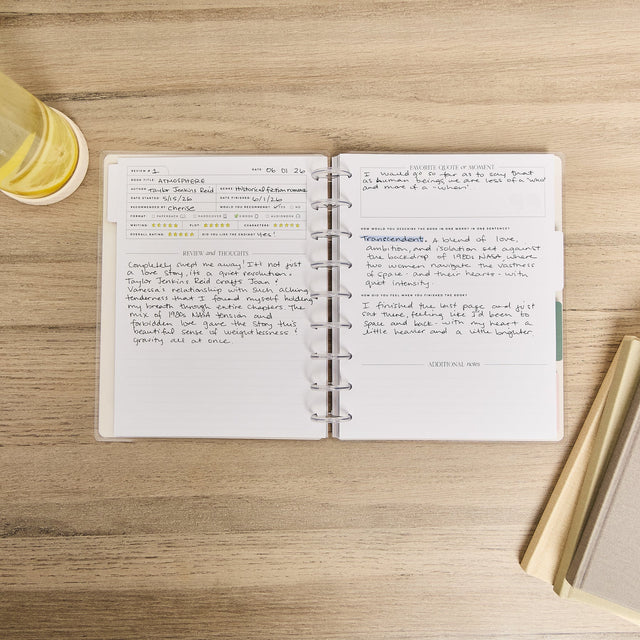 REVIEW # 1 DATE: 06 01 26
BOOK TITLE: ATMOSPHERE
AUTHOR: Taylor Jenkins Reid GENRE: Historical fiction romance
DATE STARTED: 5/15/26 DATE FINISHED: 6/1/26
RECOMMENDED BY: Cherise WOULD YOU RECOMMEND: YES NO
FORMAT: PAPERBACK HARDCOVER E-BOOK AUDIOBOOK
WRITING: PLOT: CHARACTERS:
OVERALL RATING: DID YOU LIKE THE ENDING? Yes!
REVIEW and THOUGHTS
Completely swept me away! It's not just
a love story, it's a quiet revolution.
Taylor Jenkins Reid crafts Joan &
Vanessa's relationship with such aching
tenderness that I found myself holding
my breath through entire chapters. The
mix of 1980s NASA tension and
forbidden love gave the story this
beautiful sense of weightlessness &
gravity all at once.
FAVORITE QUOTE or MOMENT
I would go so far as to say that
as human beings, we are less of a 'who'
and more of a 'when'
HOW WOULD YOU DESCRIBE THE BOOK IN ONE WORD? IN ONE SENTENCE?
Transcendent. A blend of love,
ambition, and isolation set against
the backdrop of 1980s NASA, where
two women navigate the vastness
of space - and their hearts - with
quiet intensity.
HOW DID YOU FEEL WHEN YOU FINISHED THE BOOK?
I finished the last page and just
sat there, feeling like I'd been to
space and back - with my heart a
little heavier and a little brighter.
ADDITIONAL notes